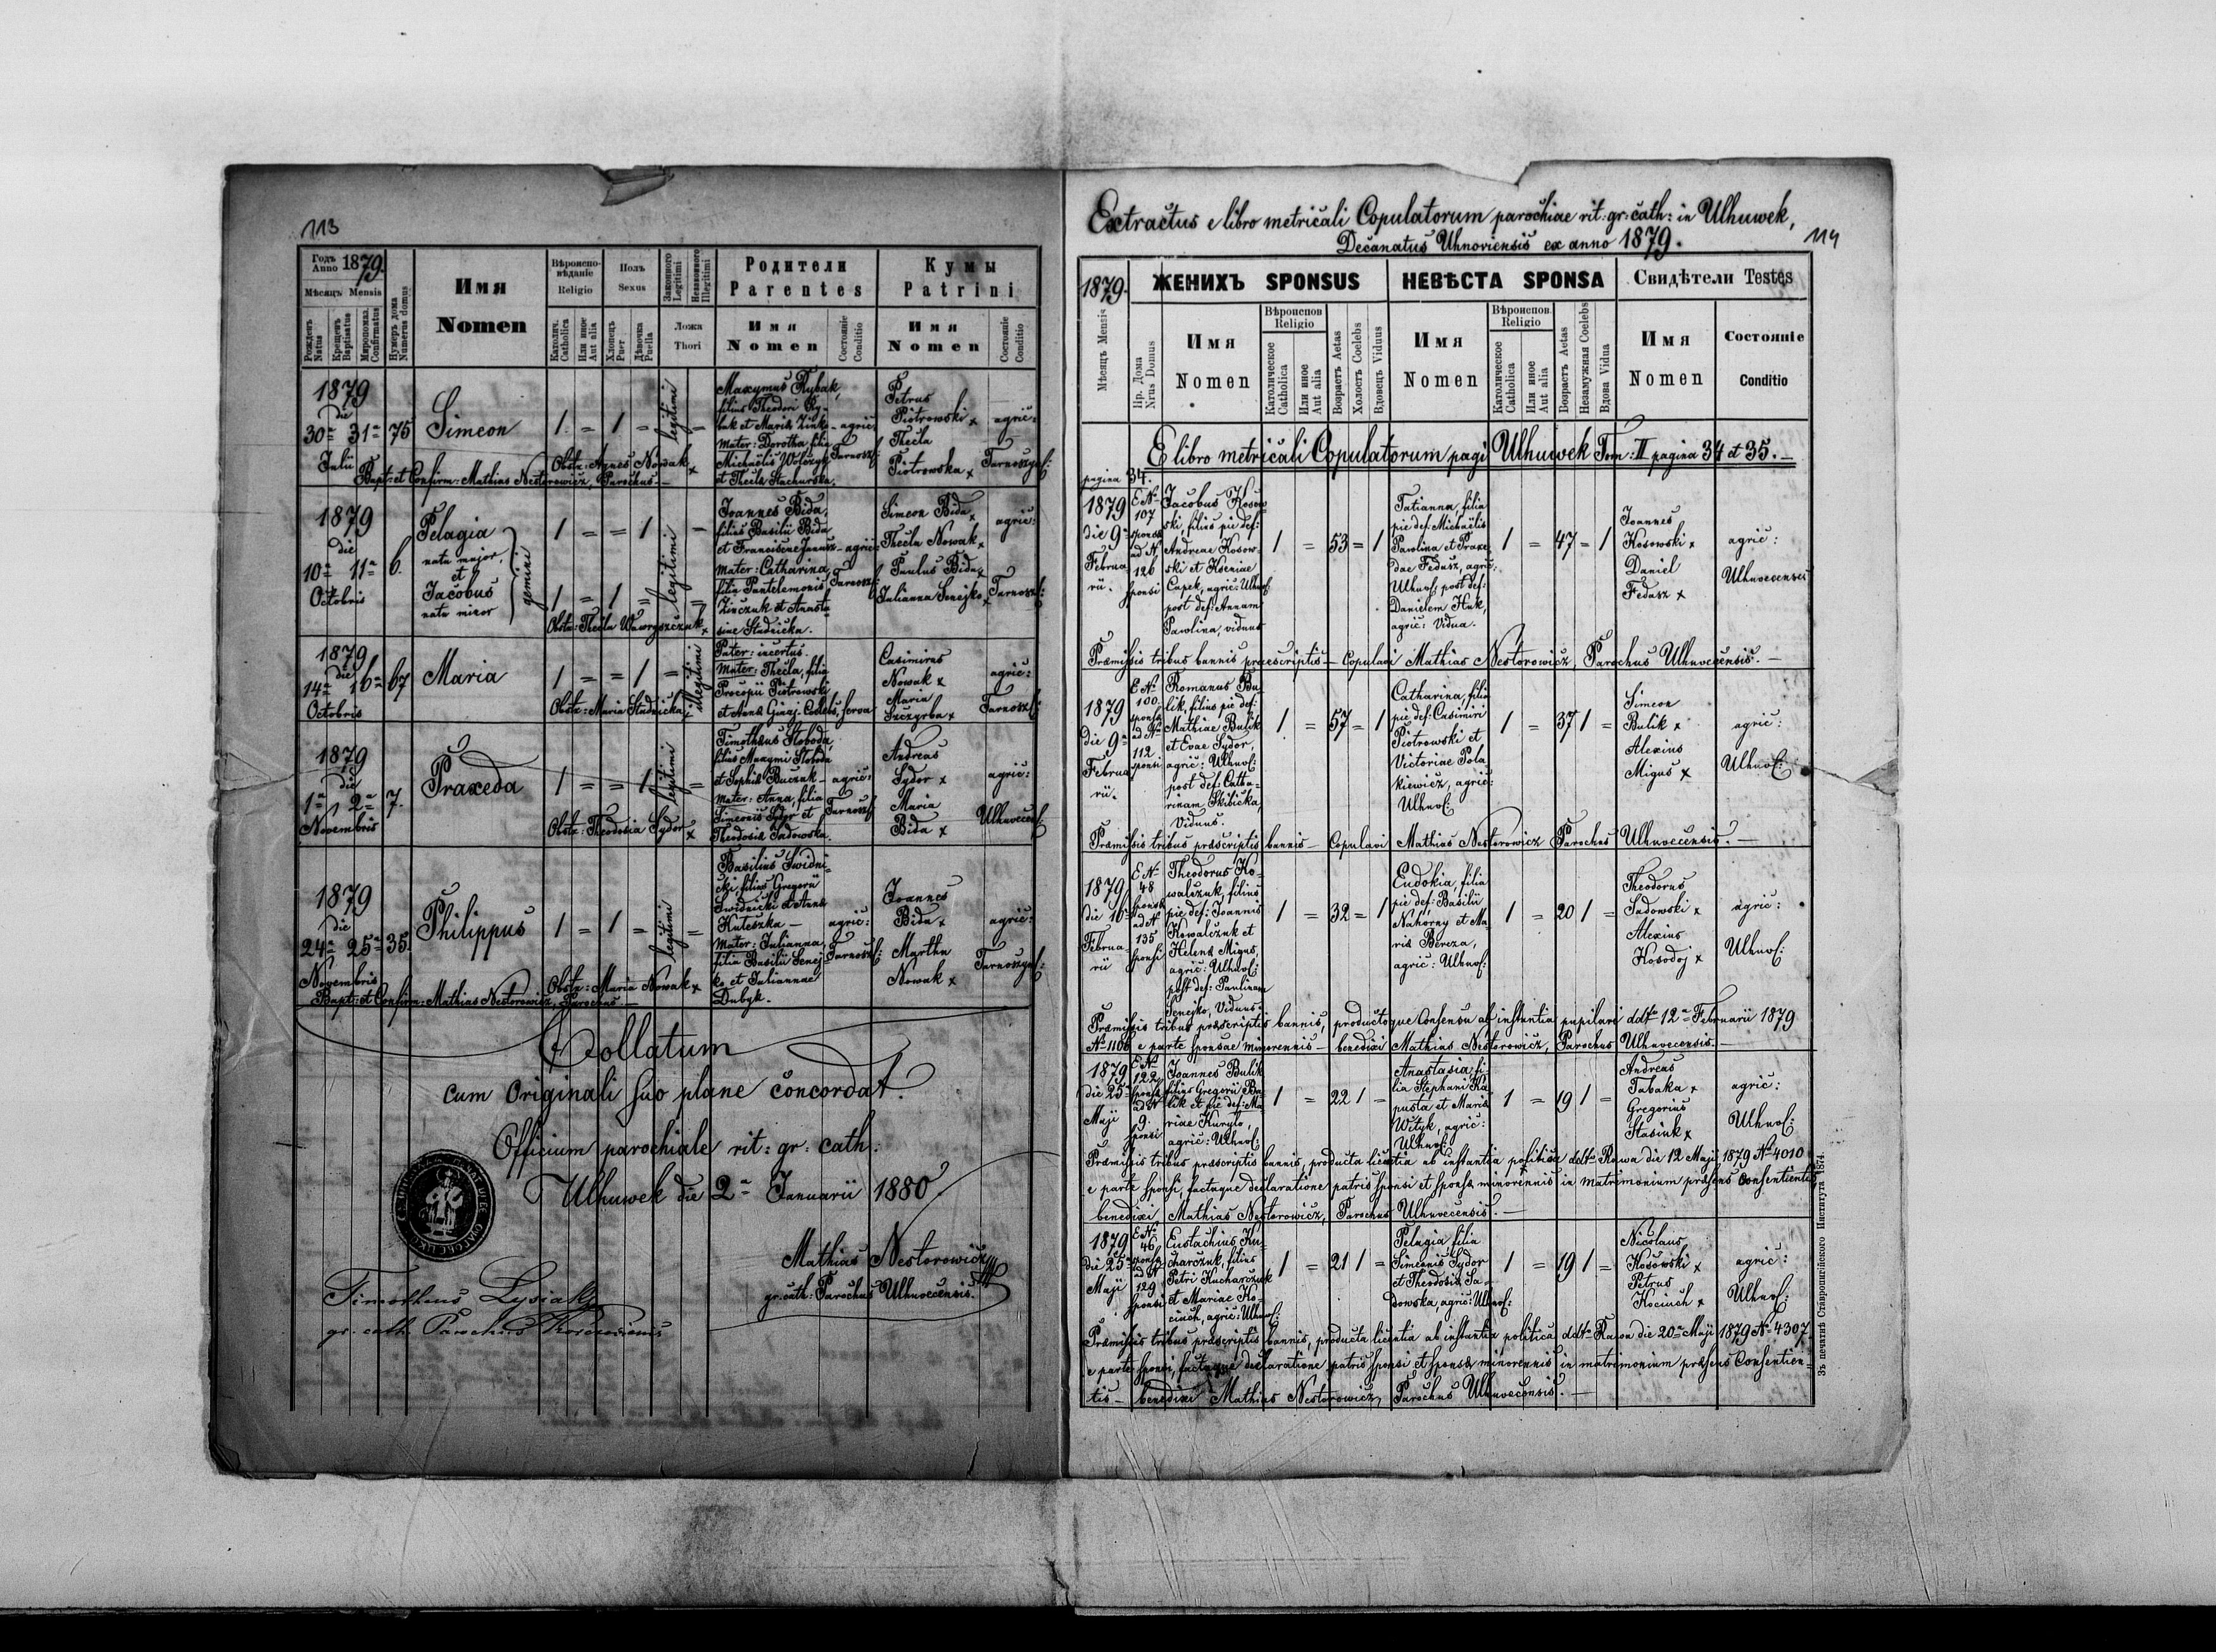 113
Годъ Anno 1879.
Мѣсяцъ Mensis
Рожденъ Natus
Крещенъ Baptisatus
Мѵропомаз. Confirmatus
Нумеръ дома Numerus domus
Имя
Nomen
Вѣроисповѣданіе Religio
Католич. Catholica
Или иное Aut alia
Полъ Sexus
Хлопецъ Puer
Дѣвочка Puella
Законного Legitimi
Незаконного Illegitimi
Ложа Thori
Родители
Parentes
Имя
Nomen
Состояніе Conditio
Кумы
Patrini
Имя
Nomen
Состояніе Conditio
1879
die
30ª 31ª 75
Julii
Simeon
1 = 1 = legitimi =
Maxymus Rybak,
filius Theodori Ry-
bak et Mariæ Zinko - agric:
Mater: Dorothea, filia
Michaëlis Wolczyk Tarnosz:
et Theclæ Stachurska.
Petrus
Piotrowski x agric:
Thecla
Piotrowska x Tarnoszyn:
Obstx: Agnes Nowak x
Bapt: et Confirm: Mathias Nestorowicz, Parochus. -
1879
die
10ª 11ª 6.
Octobris
Pelagia
natu major,
et
Jacobus
natu minor
gemini
1 = = 1 legitimi =
1 = 1 = legitimi =
Joannes Bida,
filius Basilii Bida
et Franciscæ Janusz - agric:
Mater: Catharina,
filia Pantelemonis Tarnosz:
Zinczuk et Anasta-
siae Studnicka.
Simeon Bida x agric:
Thecla Nowak x
Paulus Bida x
Julianna Senejko x Tarnosz:
Obstx: Thecla Wawryszczuk x
1879
die
14ª 16ª 67
Octobris
Maria
1 = = 1 = illegitimi
Pater: incertus.
Mater: Thecla, filia
Procopii Piotrowski
et Annæ Ginzj. Coelebs, serva
Casimirus
Nowak x agric:
Maria
Szczyrba x Tarnosz:
Obstx: Maria Studnicka x
1879
die
1ª 2ª 7.
Novembris
Praxeda
1 = = 1 legitimi =
Timotheus Sloboda,
filius Maxymi Sloboda
et Sophiæ Buczak - agric:
Mater: Anna, filia
Simeonis Sydor et Tarnosz:
Theodosiæ Sadowska.
Andreas
Sydor x agric:
Maria
Bida x Ulhuvecens:
Obstx: Theodosia Sydor x
1879
die
24ª 25ª 35.
Novembris
Philippus
1 = 1 = legitimi =
Basilius Swidni-
cki, filius Gregorii
Swidnicki et Annæ
Huteszka - agric:
Mater: Julianna,
filia Basilii Senej- Tarnosz:
ko et Juliannae
Dubyk.
Joannes
Bida x agric:
Martha
Nowak x Tarnoszyn:
Obstx: Maria Nowak x
Bapt: et Confirm: Mathias Nestorowicz, Parochus. -
Collatum
cum Originali suo plane concordat.
Officium parochiale rit: gr: cath:
Ulhuwek die 2ª Januarii 1880.
Mathias Nestorowicz
gr: cath: Parochus Ulhuvecensis.
Timotheus Lysiak
gr. cath. Parochus
Extractus e libro metricali Copulatorum parochiae rit: gr: cath: in Ulhuwek,
Decanatus Uhnoviensis ex anno 1879.
114
1879.
Мѣсяцъ Mensis
Нр. Дома Nrus Domus
ЖЕНИХЪ SPONSUS
Имя
Nomen
Вѣроиспов Religio
Католическое Catholica
Или иное Aut alia
Возрастъ Aetas
Холостъ Coelebs
Вдовецъ Viduus
НЕВѢСТА SPONSA
Имя
Nomen
Вѣроиспов. Religio
Католическое Catholica
Или иное Aut alia
Возрастъ Aetas
Незамужная Coelebs
Вдова Vidua
Свидѣтели Testes
Имя
Nomen
Состояніе
Conditio
E libro metricali Copulatorum pagi Ulhuwek Tom: II pagina 34 et 35. -
pagina 34.
1879
die 9ª
Februa
rii.
E Nº
107
sponsæ
ad N.
126
sponsi
Jacobus Kosow-
ski, filius pie def:
Andreae Kosow-
ski et Xeniae
Capek, agric: Ulhuv:
post def: Annam
Pawlina, viduus
1 = 53 = 1
Tatianna, filia
pie def: Michaëlis
Pawlina et Praxe-
dae Fedusz, agric:
Ulhuv: post def:
Danielem Huk,
agric: Vidua.
1 = 47 = 1
Joannes
Kosowski x agric:
Daniel
Fedusz x Ulhuvecenses
Præmissis tribus bannis praescriptis - Copulavi Mathias Nestorowicz, Parochus Ulhuvecensis. -
1879
die 9ª
Februa
rii.
E Nº
100.
sponsæ
ad Nº
112
sponsi
Romanus Bu-
lik, filius pie def:
Mathiae Bulik
et Evae Sydor,
agric: Ulhuv:
post def: Catha-
rinam Skibicka,
Viduus.
1 = 57 = 1
Catharina, filia
pie def: Casimiri
Piotrowski et
Victoriae Pola
kiewicz, agric:
Ulhuv:
1 = 37 1 =
Simeon
Bulik x agric:
Alexius
Migus x Ulhuv:
Præmissis tribus præscriptis bannis - Copulavi Mathias Nestorowicz Parochus Ulhuvecensis. -
1879
die 16ª
Februa-
rii
E Nº
48
sponsæ
ad Nº
135
sponsi
Theodorus Ko-
walczuk, filius
pie def: Joannis
Kowalczuk et
Helenæ Migus,
agric: Ulhuv:
post def: Paulinam
Senejko, Viduus.
1 = 32 = 1
Eudokia, filia
pie def: Basilii
Nahorny et Ma-
riæ Bereza,
agric: Ulhuv:
1 = 20 1 =
Theodorus
Sadowski x agric:
Alexius
Kosodoj x Ulhuv:
Præmissis tribus præscriptis bannis, productoque Consensu ab instantia pupilari ddtº 12ª Februarii 1879
Nº 1106 e parte sponsae minorennis - benedixi Mathias Nestorowicz, Parochus Ulhuvecensis. -
1879
die 25ª
Maji
E Nº
122
sponsæ
ad N
9.
sponsi
Joannes Bulik
filius Gregorii Bu-
lik et pie def: Ma-
riae Kurylo,
agric: Ulhuv:
1 = 22 1 =
Anastasia, fi-
lia Stephani Ka
pusta et Mariæ
Wityk, agric:
Ulhuv:
1 = 19 1 =
Andreas
Tabaka x agric:
Gregorius
Stasiuk x Ulhuv:
Præmissis tribus præscriptis bannis, producta licentia ab instantia politica ddtº Rawa die 12 Maji 1879 Nº 4010
e parte sponsi, factaque declaratione patris sponsi et sponsæ minorennis in matrimonium præsens Consentientis
benedixi, Mathias Nestorowicz, Parochus Ulhuvecensis. -
1879
die 25ª
Maji
E Nº
46
sponsæ
ad N
129
sponsi
Eustachius Ku-
charczuk, filius
Petri Kucharczuk
et Mariae Ko-
ciuch, agric: Ulhuv:
1 = 21 1 =
Pelagia filia
Simeonis Sydor
et Theodosiæ Sa-
dowska, agric: Ulhuv:
1 = 19 1 =
Nicolaus
Kosowski x agric:
Petrus
Kociuch x Ulhuv:
Præmissis tribus præscriptis bannis, producta licentia ab instantia politica ddtº Rawa die 20ª Maji 1879 Nº 4307.
e parte sponsi, factaque declaratione patris sponsi et sponsæ minorennis in matrimonium præsens Consentien=
tis - benedixi Mathias Nestorowicz, Parochus Ulhuvecensis. -
Зъ печатнѣ Ставропигійского Института 1874.